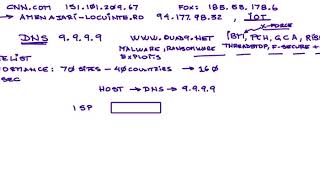 CNN.COM 151.101.209.67 FOX: 188.55.178.6
→ AMENAJARI-LOCUINTE.RO 94.177.98.32, IOT
X-FORCE
DNS 9.9.9.9 WWW.QUAD9.NET IBM, PCH, GCA,
MALWARE, RANSOMWARE THREATSTOP, F-SECURE +
EXPLOITS
ELIST
70 SITES - 40 COUNTRIES → 160
SEC
HOST → DNS → 9.9.9.9
ISP